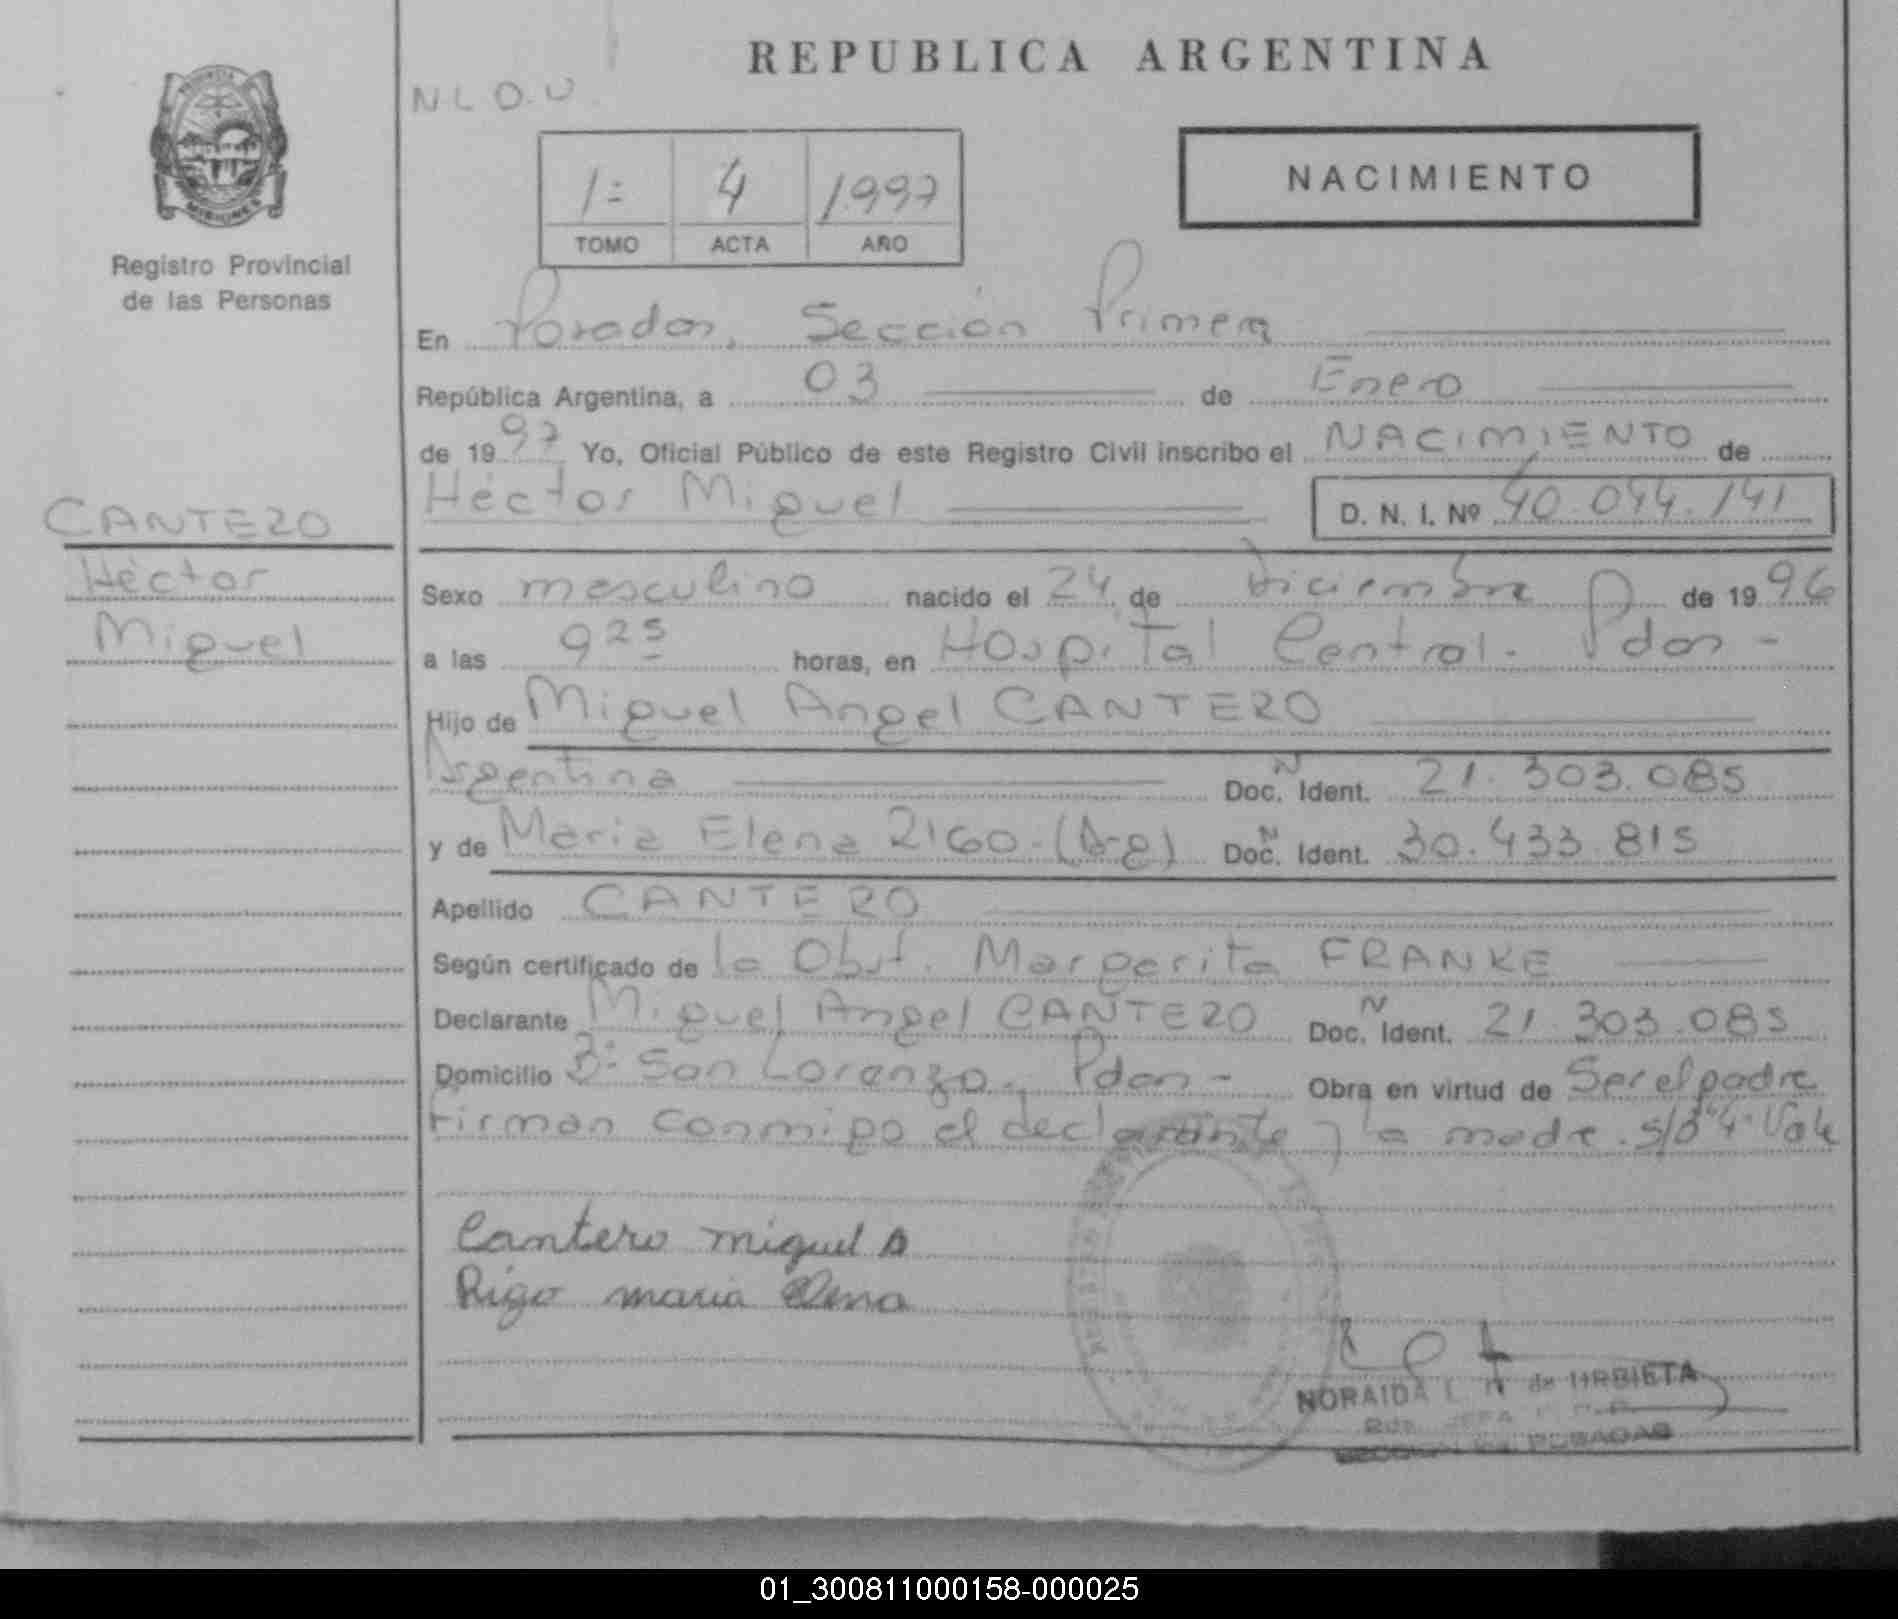 REPUBLICA ARGENTINA
N L D.U
PROVINCIA
MISIONES
Registro Provincial
de las Personas
1º 4 1.997
TOMO ACTA AÑO
NACIMIENTO
En Posadas, Sección Primera
República Argentina, a 03 de Enero
de 1997 Yo, Oficial Público de este Registro Civil inscribo el NACIMIENTO de
Héctor Miguel D. N. I. Nº 40.044.141
CANTERO
Héctor
Miguel
Sexo masculino nacido el 24 de Diciembre de 1996
a las 9 25 horas, en Hospital Central. Pdas -
Hijo de Miguel Angel CANTERO
Argentina Doc. Ident. N 21.303.085
y de Maria Elena RIGO. (Arg) Doc. Ident. N 30.433.815
Apellido CANTERO
Según certificado de la Obst. Margarita FRANKE
Declarante Miguel Angel CANTERO Doc. Ident. N 21.303.085
Domicilio Bº San Lorenzo. Pdas - Obra en virtud de Ser el padre
Firman conmigo el declarante y la madre. s/b "4" Vale
Cantero miguel A
Rigo maria Elena
NORAIDA de URBIETA
SECCION POSADAS
01_300811000158-000025